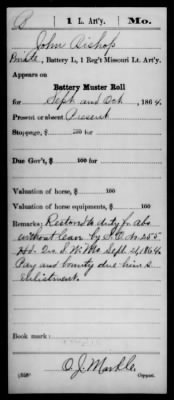 B | 1 L. Art'y. | Mo.
John Bishop
Private, Battery L, 1 Reg't Missouri Lt. Art'y.
Appears on
Battery Muster Roll
for Sept and Oct, 1864
Present or absent Present
Stoppage, $ 100 for
Due Gov't, $ 100
Valuation of horse, $ 100
Valuation of horse equipments, $ 100
Remarks: Restored to duty fr abs
without leave by S.O. No 255
Hd. Qrs. S.W. Mo Sept 21, 1864
Pay and bounty due him
enlistment
Book mark:
(858) O. J. Markle,
Copyist.